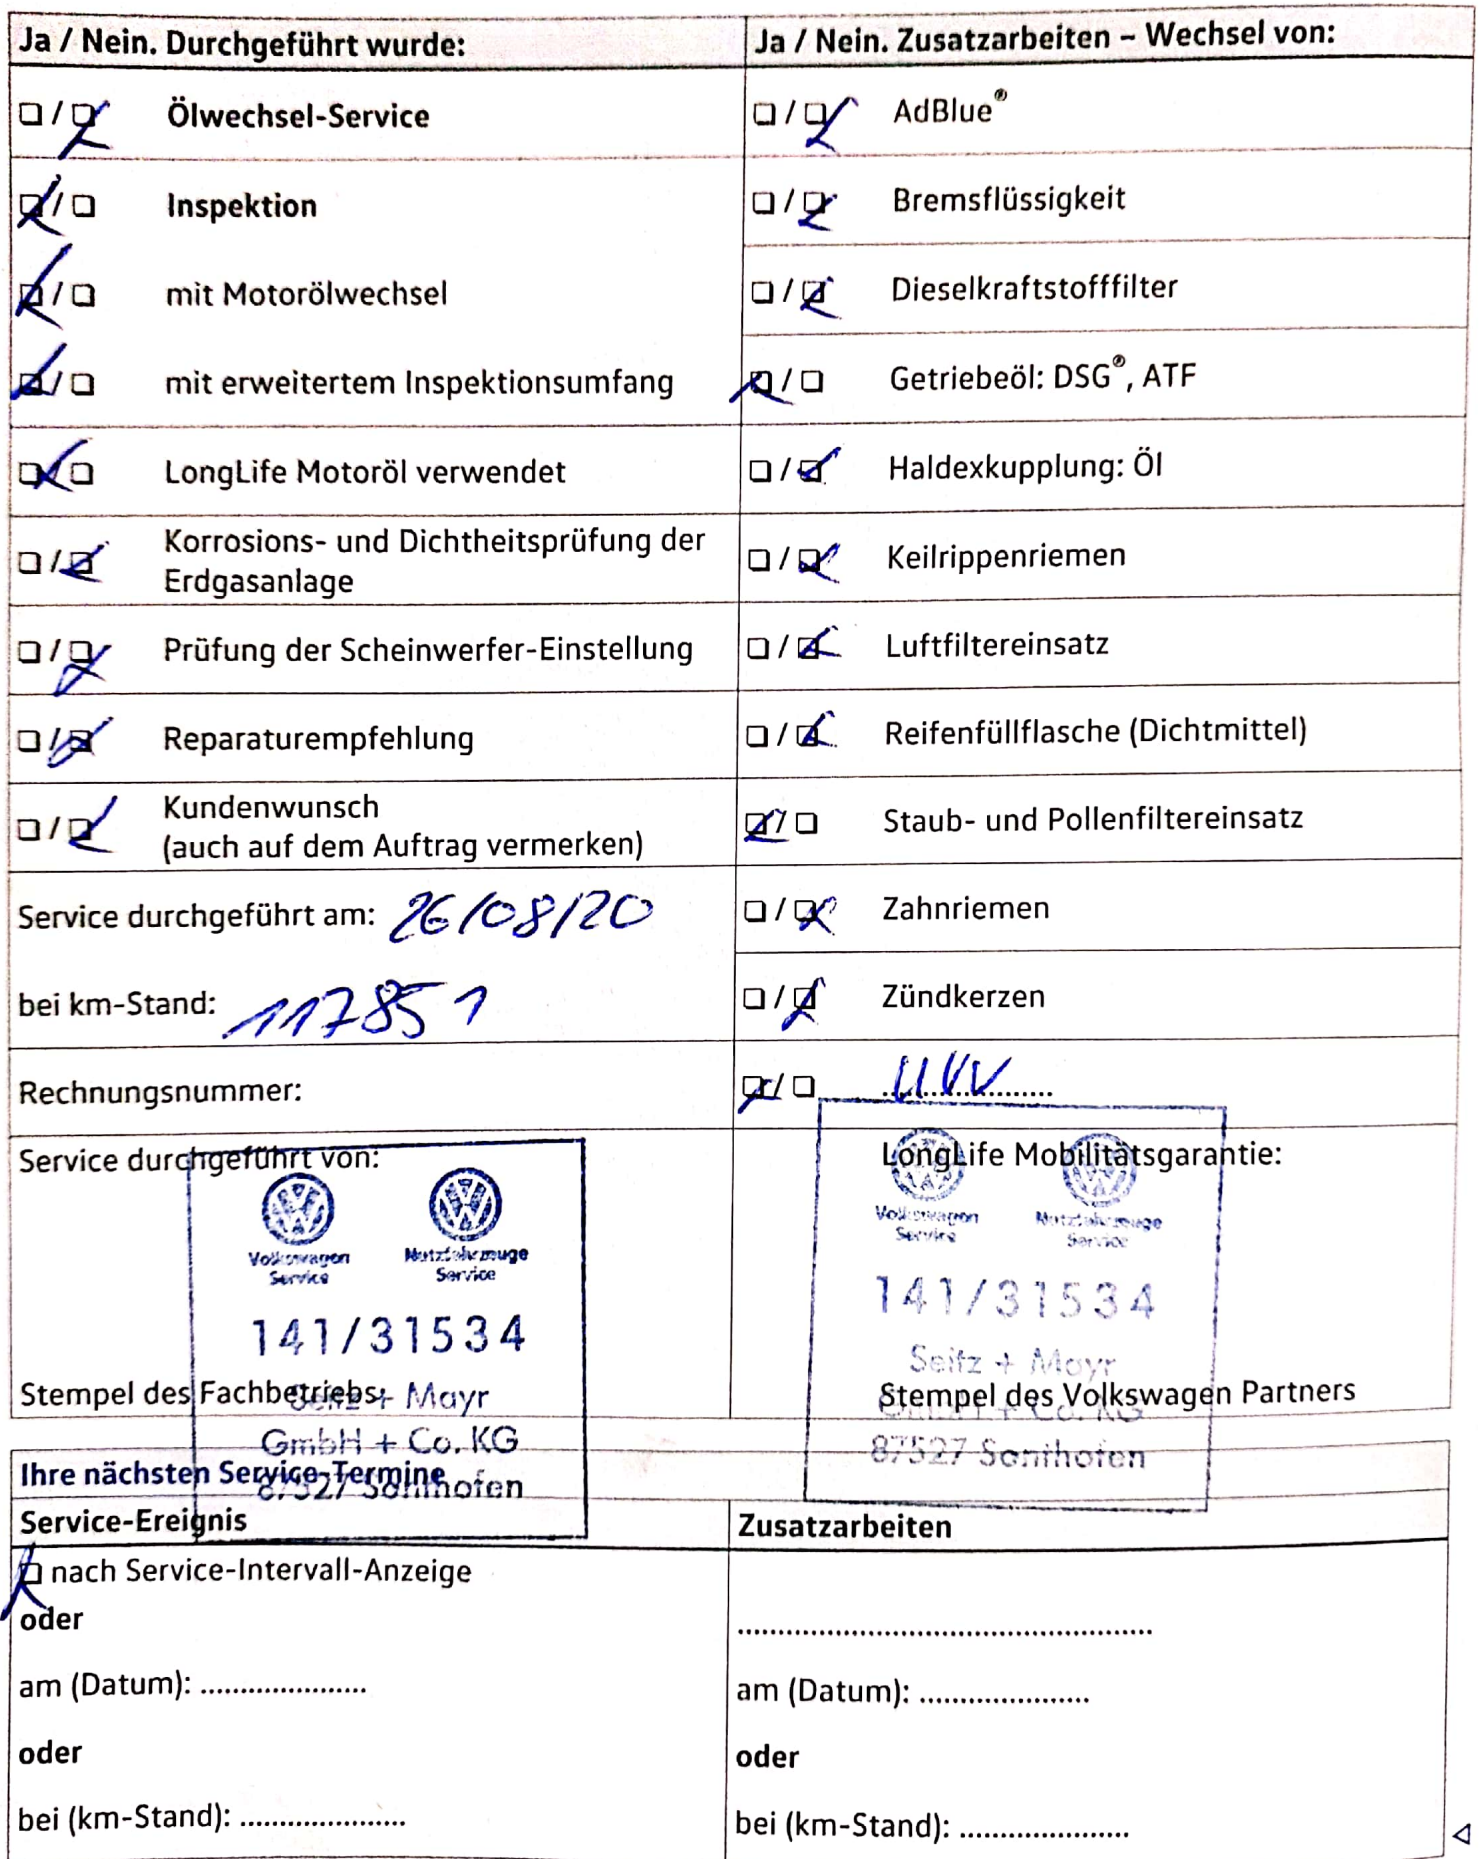 Ja / Nein. Durchgeführt wurde:
Ja / Nein. Zusatzarbeiten – Wechsel von:
/ Ölwechsel-Service
/ AdBlue®
/ Inspektion
/ Bremsflüssigkeit
/ mit Motorölwechsel
/ Dieselkraftstofffilter
/ mit erweitertem Inspektionsumfang
/ Getriebeöl: DSG®, ATF
/ LongLife Motoröl verwendet
/ Haldexkupplung: Öl
/ Korrosions- und Dichtheitsprüfung der
Erdgasanlage
/ Keilrippenriemen
/ Prüfung der Scheinwerfer-Einstellung
/ Luftfiltereinsatz
/ Reparaturempfehlung
/ Reifenfüllflasche (Dichtmittel)
/ Kundenwunsch
(auch auf dem Auftrag vermerken)
/ Staub- und Pollenfiltereinsatz
Service durchgeführt am: 26/08/20
/ Zahnriemen
bei km-Stand: 117851
/ Zündkerzen
Rechnungsnummer:
/
Service durchgeführt von:
Volkswagen Service
Nutzfahrzeuge Service
141/31534
Seitz + Mayr
GmbH + Co. KG
87527 Sonthofen
Stempel des Fachbetriebs:
LongLife Mobilitätsgarantie:
Volkswagen Service
Nutzfahrzeuge Service
141/31534
Seitz + Mayr
GmbH + Co. KG
87527 Sonthofen
Stempel des Volkswagen Partners
Ihre nächsten Service-Termine
Service-Ereignis
Zusatzarbeiten
nach Service-Intervall-Anzeige
oder
am (Datum): .....................
oder
bei (km-Stand): .....................
....................................................
am (Datum): .....................
oder
bei (km-Stand): .....................